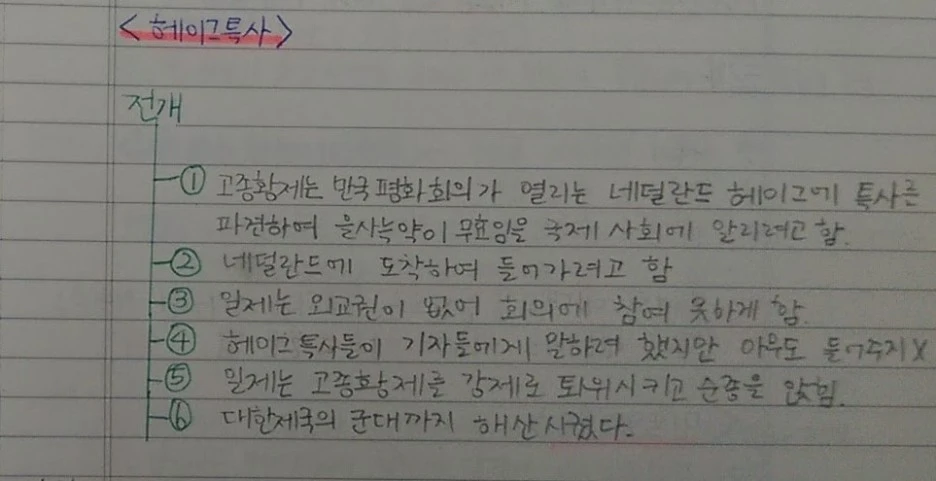 <헤이그특사>
전개
① 고종황제는 만국평화회의가 열리는 네덜란드 헤이그에 특사를
파견하여 을사늑약이 무효임을 국제 사회에 알리려고 함.
② 네덜란드에 도착하여 들어가려고 함
③ 일제는 외교권이 없어 회의에 참여 못하게 함.
④ 헤이그 특사들이 기자들에게 말하려 했지만 아무도 들어주지 X
⑤ 일제는 고종황제를 강제로 퇴위시키고 순종을 앉힘.
⑥ 대한제국의 군대까지 해산시켰다.